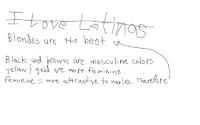 I Love Latinas
Blondes are the best
Black and brown are masculine colors
yellow & gold are more feminine
feminine = more attractive to males. Therefore